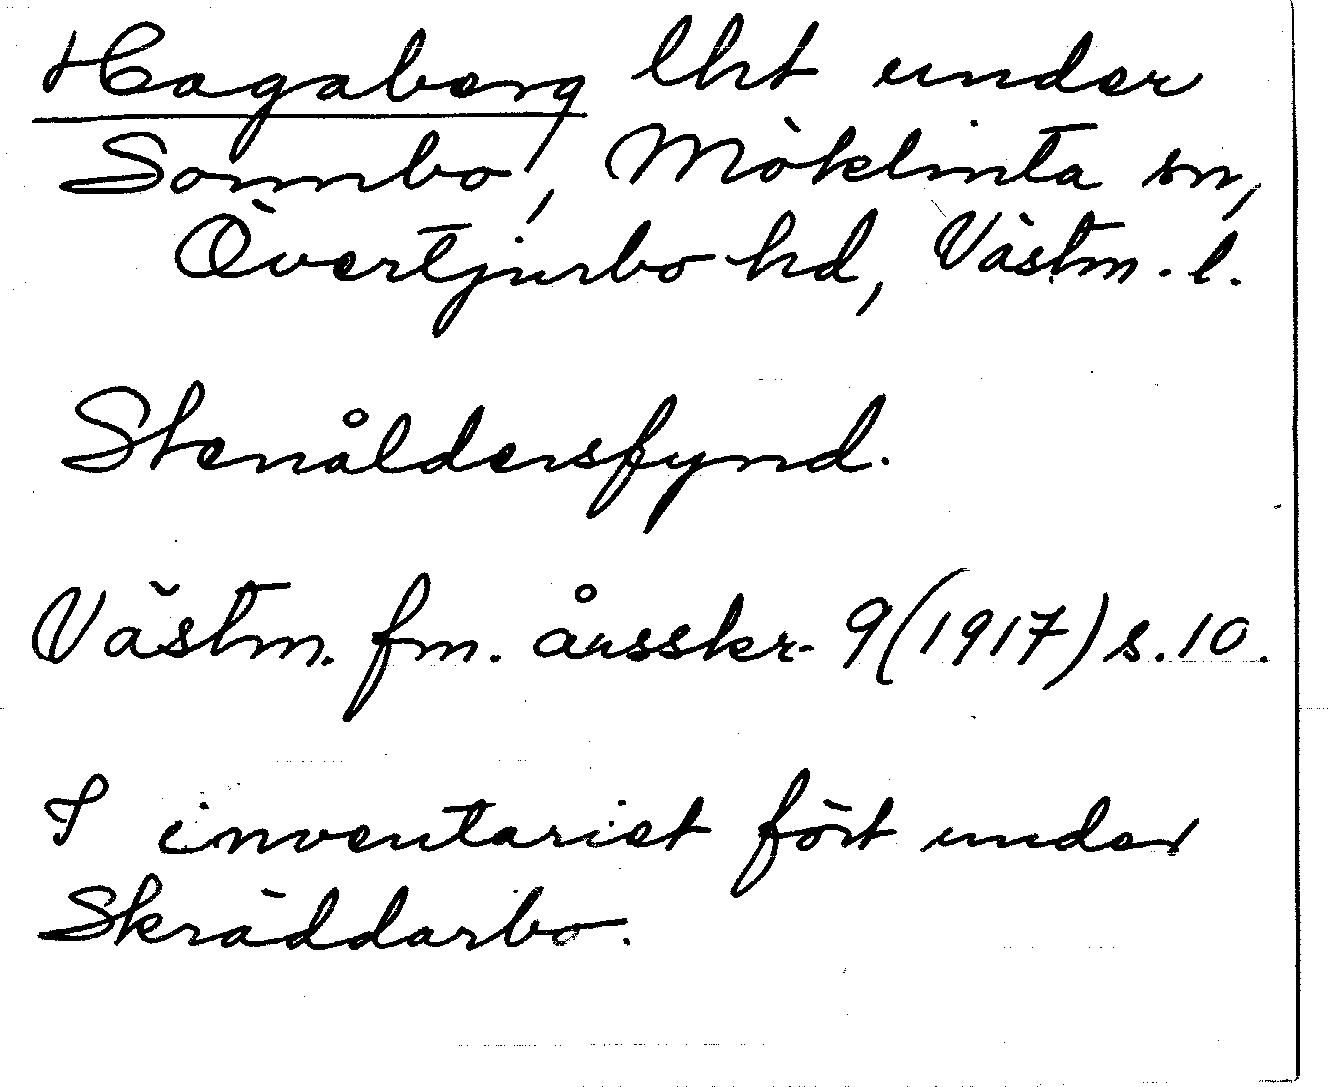 Hagaberg lht under
Sonnbo, Möklinta sn,
Övertjurbo hd, Västm. l.
Stenåldersfynd.
Västm. fm. årsskr. 9 (1917) s. 10.
I inventariet fört under
Skräddarbo.